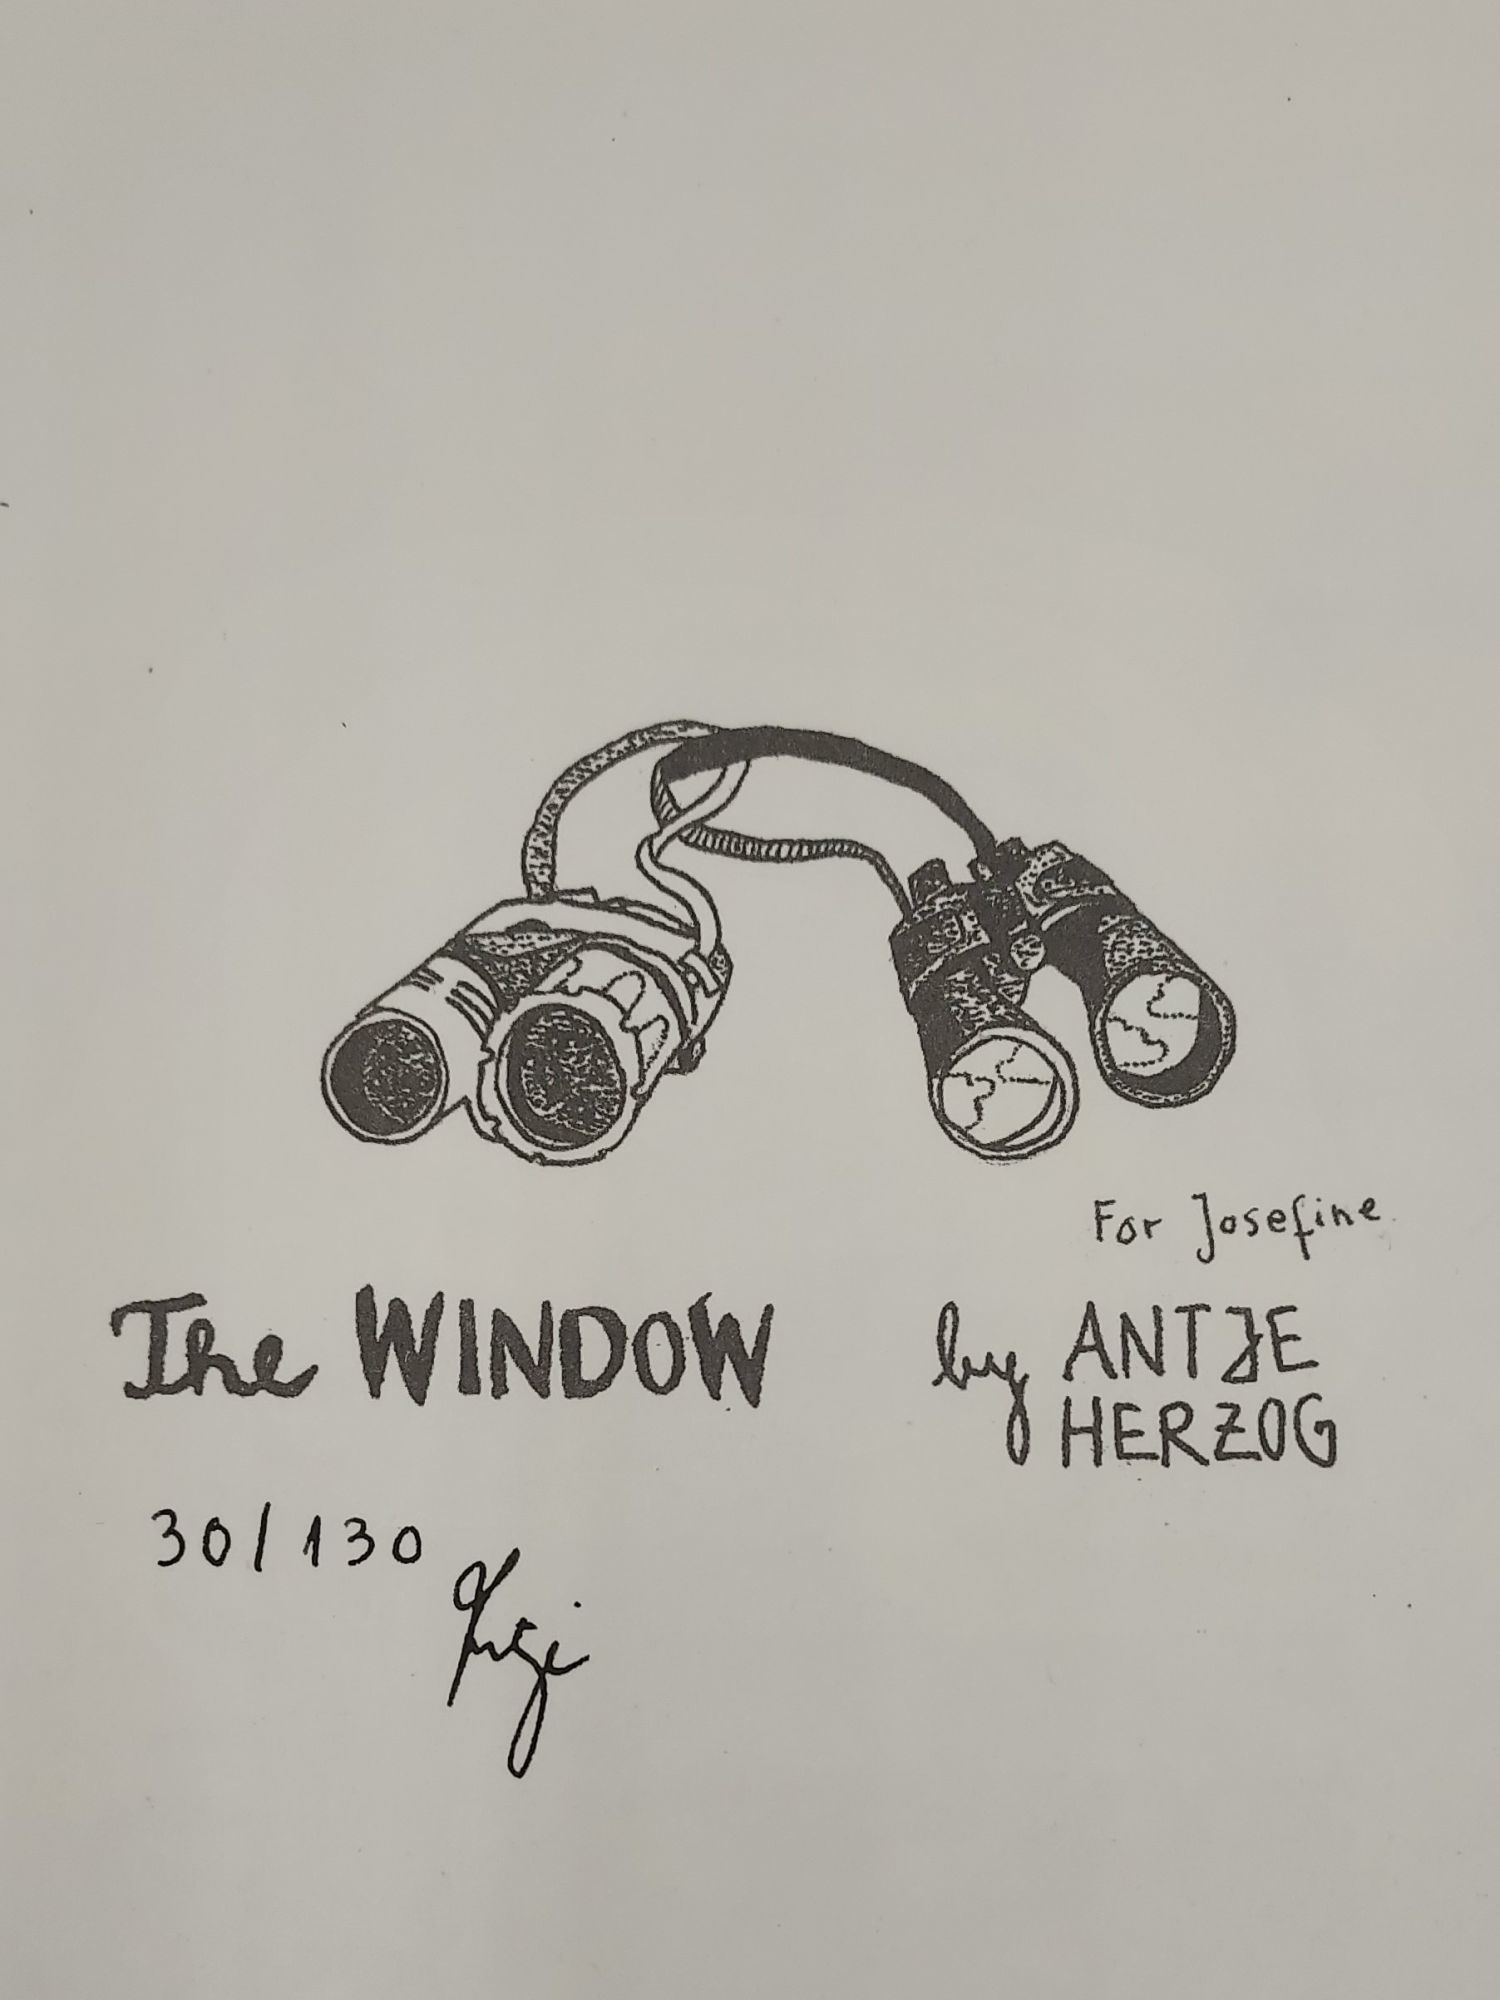 For Josefine
The WINDOW
by ANTJE
HERZOG
30/130